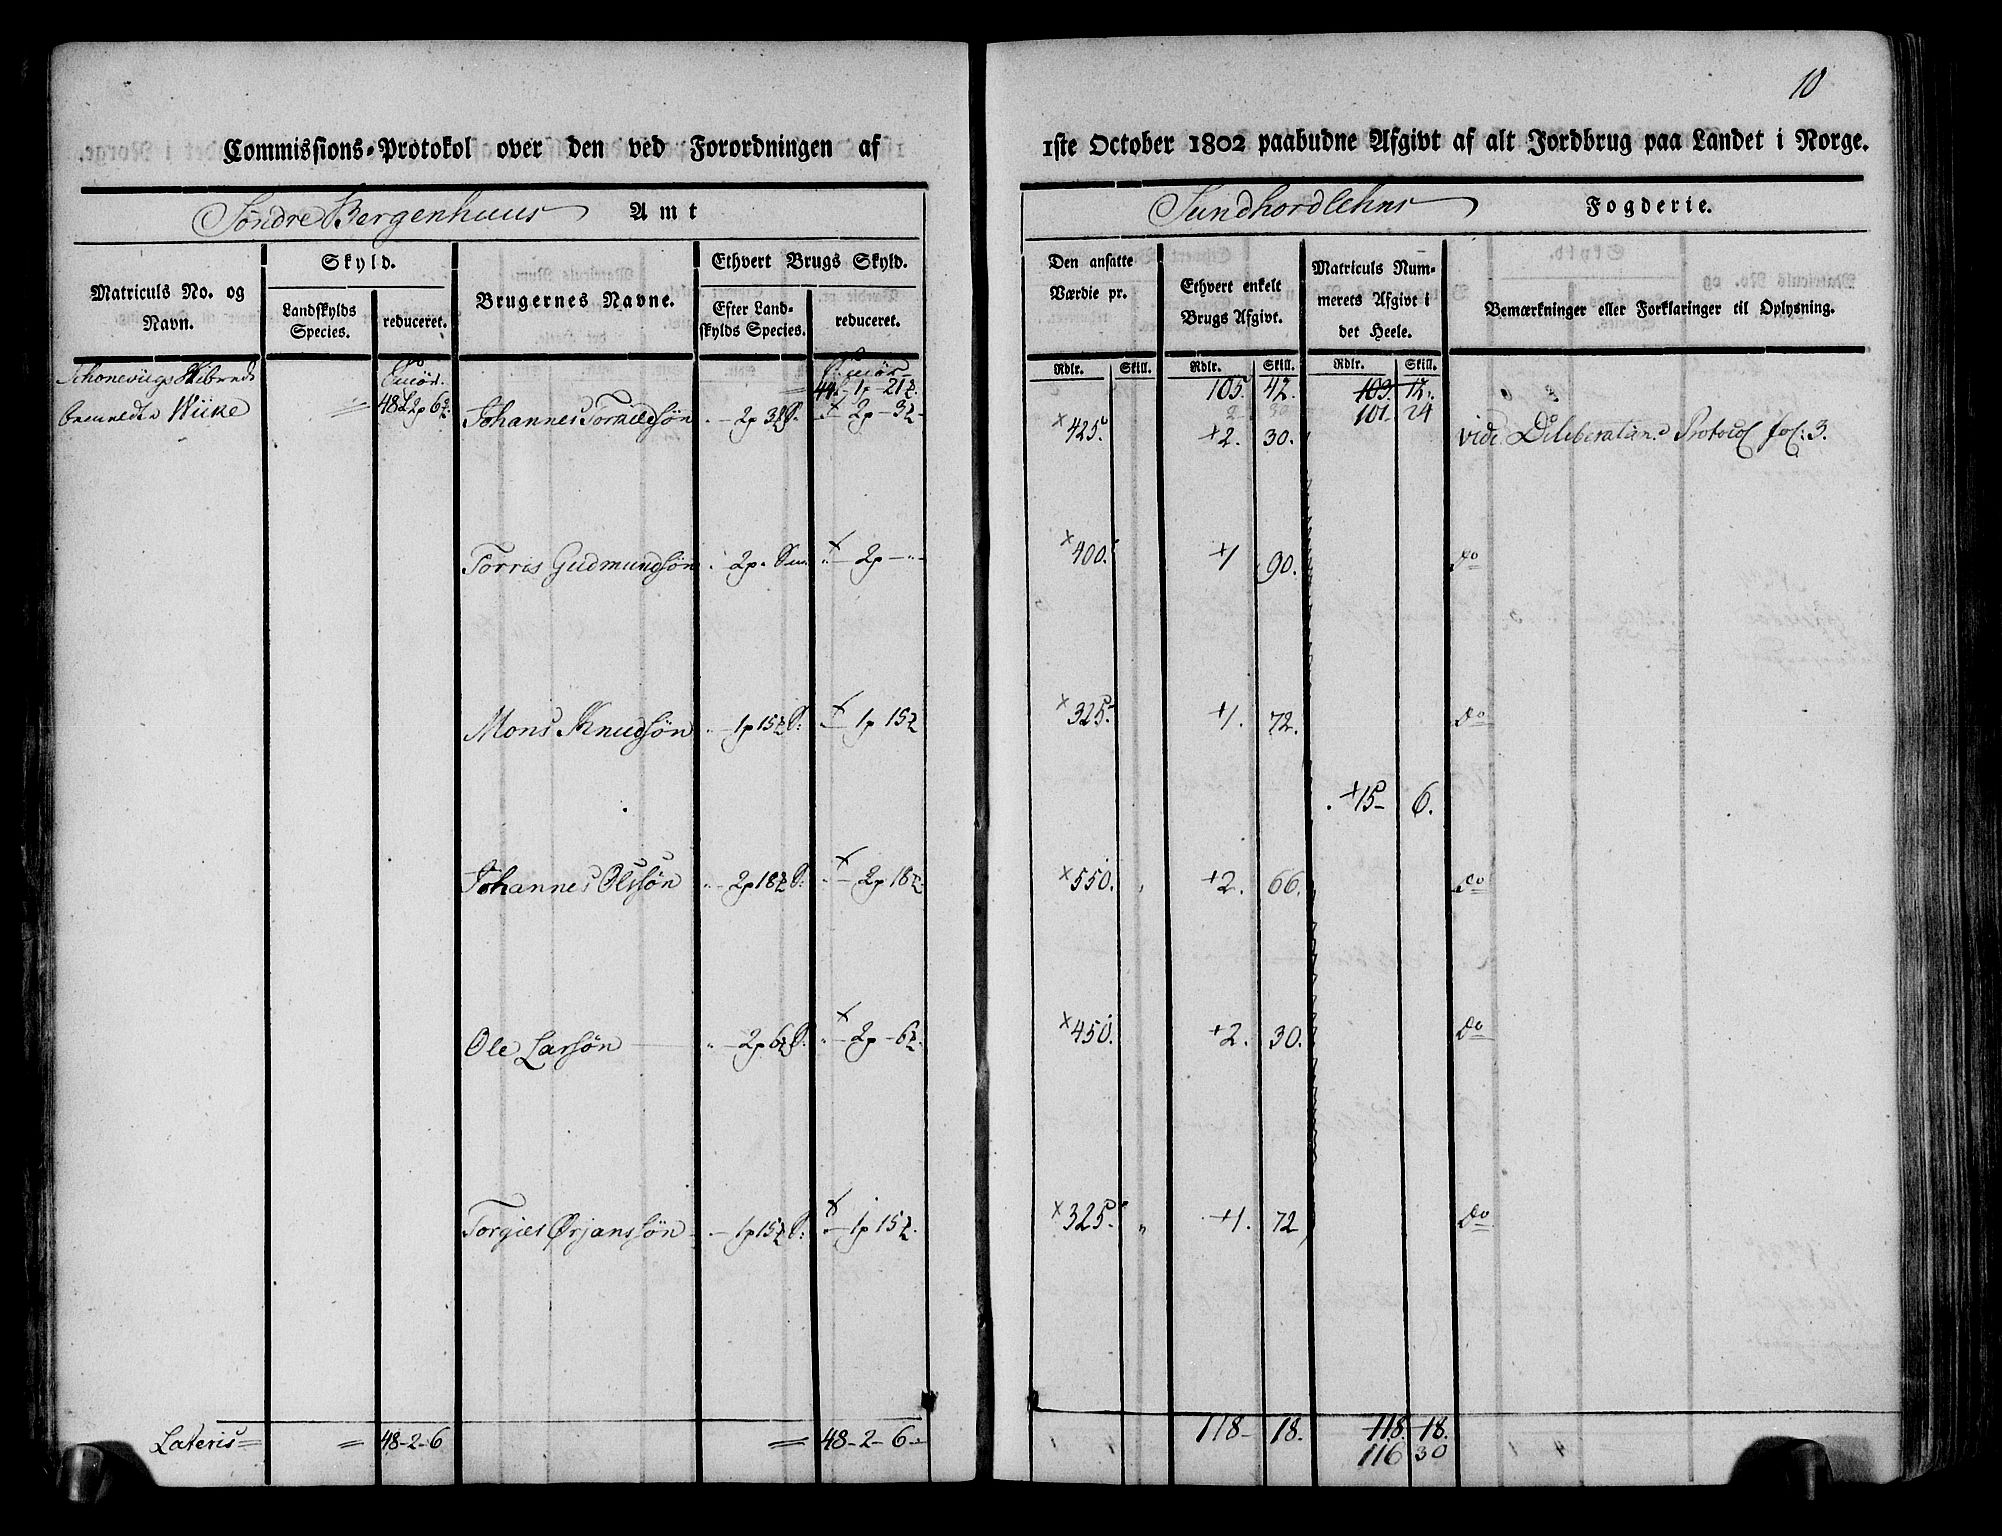 10
Commissions-Protokol over den ved Forordningen af 1ste October 1802 paabudne Afgivt af alt Jordbrug paa Landet i Norge.
Søndre Bergenhuus Amt
Sundhordlehns Fogderie.
Matriculs No. og Navn.
Skyld.
Landskylds Species.
reduceret.
Brugernes Navne.
Ethvert Brugs Skyld.
Efter Landskylds Species.
reduceret.
Den ansatte Værdie pr.
Rdlr. Skill.
Ethvert enkelt Brugs Afgivt.
Rdlr. Skill.
Matriculs Nummerets Afgivt i det Heele.
Rdlr. Skill.
Bemærkninger eller Forklaringer til Oplysning.
Schonevigs Skibrede
Smør. Smør
1p 21 105. 42. 103. 12.
101. 24
Wiike 48 2p 6 Johannes Tormodsøn 2p 3 2p 3 425. 2. 30. vide Deliberations Protocol fol: 3.
Torris Gudmundsøn 2p 2p 400. 1 90. do
Mons Knudsøn 1p 15 1p 15 325. 1. 72. do
15 6.
Johannes Olssøn 2p 18 2p 18 550. 2. 66. do
Ole Larsøn 2p 6 2p 6 450. 2. 30. do
Torgies Ørjanssøn 1p 15 1p 15 325. 1. 72 do
Lateris 48-2-6 48-2-6 118 18. 118 18.
116 30